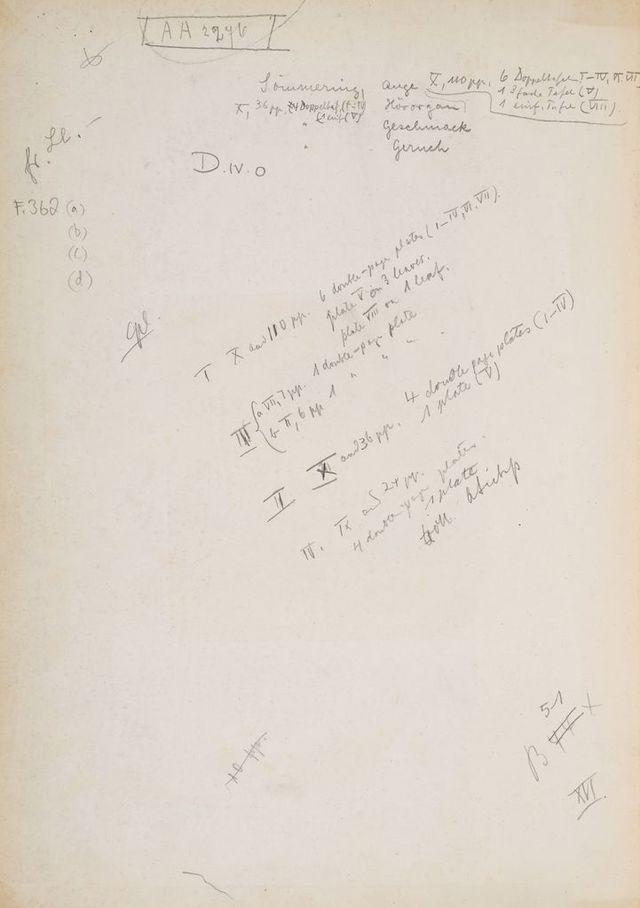 AA 2276
Sömmering, Auge X, 110 pp. 6 Doppeltafeln I-IV, VI. VII
1 3fache Tafel (V)
X, 36 pp. 4 Doppeltaf. (I-IV) Hörorgan 1 einf. Tafel (VIII).
1 einf. (V) Geschmack
" Geruch
D. IV. 0
F. 362 (a)
(b)
(c)
(d)
cpl.
I X and 110 pp. 6 double-page plates (I-IV, VI. VII).
plate V on 3 leaves.
plate VIII on 1 leaf.
III a VII, 7 pp. 1 double-page plate
b II, 6 pp 1 " " "
II X and 36 pp. 4 double page plates (I-IV)
1 plate (V)
IV. IX and 24 pp.
4 double-page plates.
1 plate
coll.
51
B x
XVI.